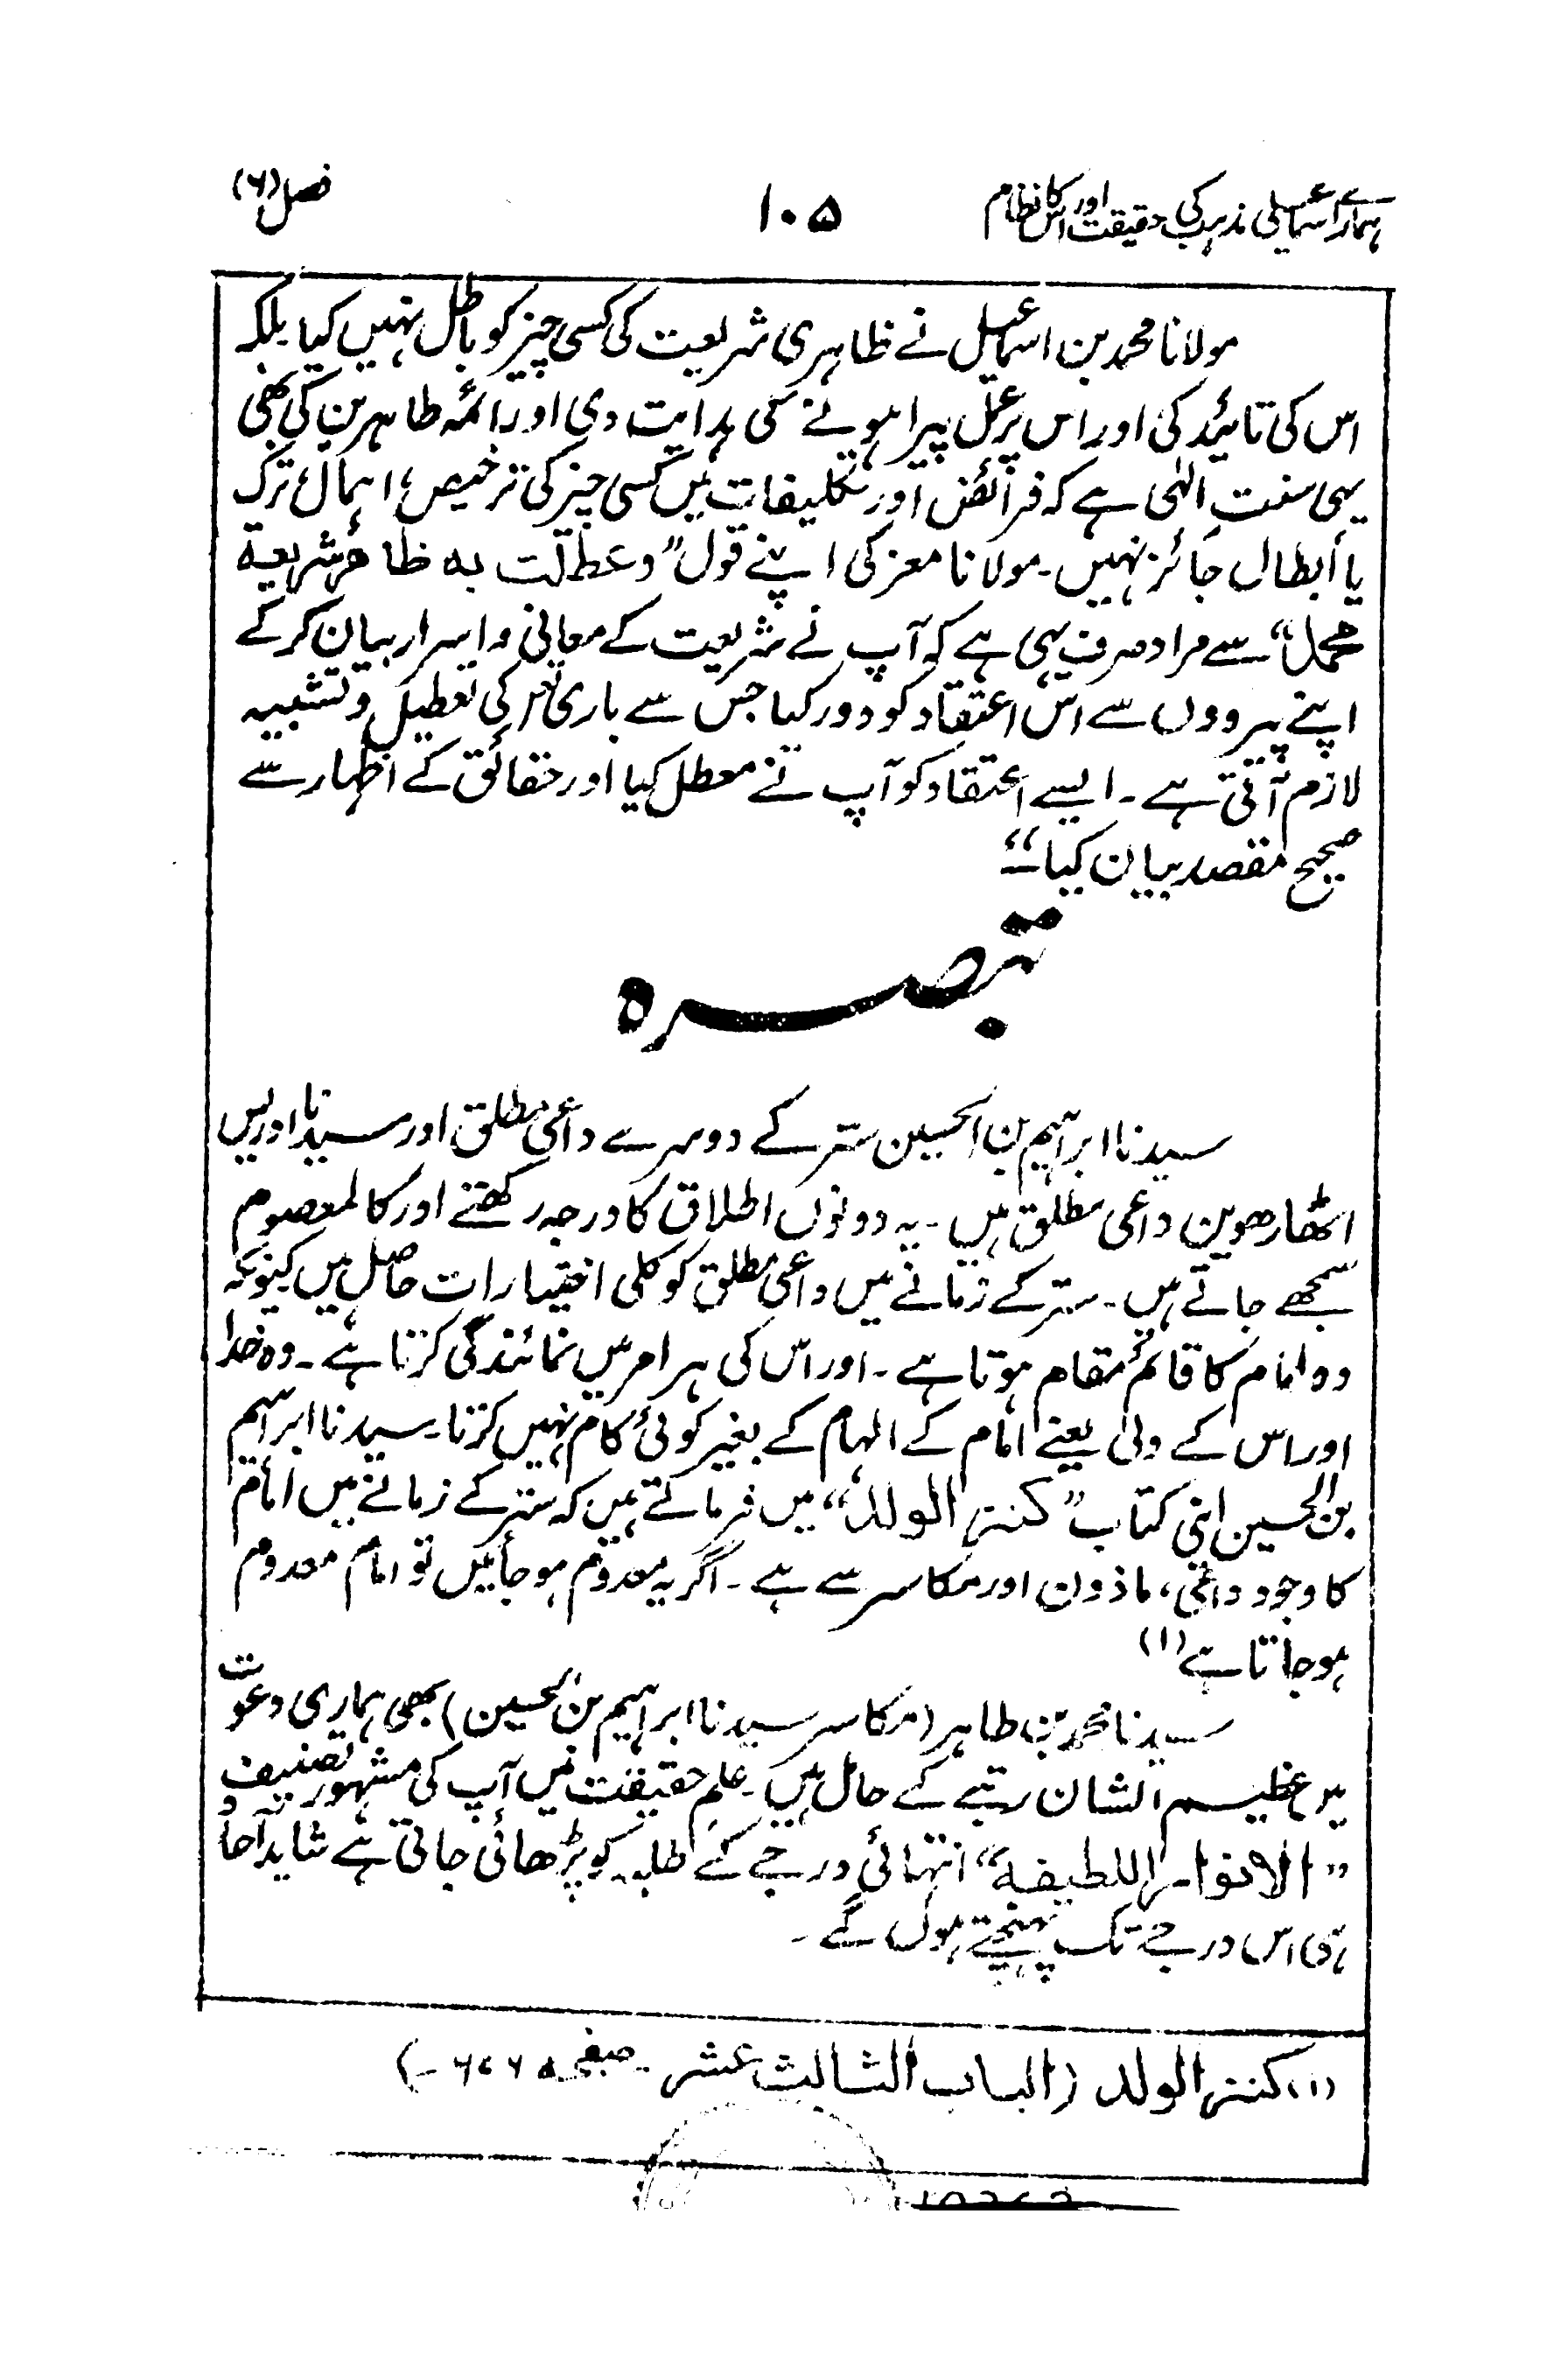 ہمارے اسماعیلی مذہب کی حقیقت اور اس کا نظام
۱۰۵
فصل (۶)
مولانا محمد بن اسماعیل نے ظاہری شریعت کی کسی چیز کو باطل نہیں کیا بلکہ
اس کی تائید کی اور اس پر عمل پیرا ہونے کی ہدایت دی اور ائمہ طاہرین کی بھی
یہی سنت الٰہی ہے کہ فرائض اور تکلیفات میں کسی چیز کی ترخیص، اہمال، ترک
یا ابطال جائز نہیں۔ مولانا معز کی اپنے قول ”وعطلت بہ ظاھر شریعۃ
محمد“ سے مراد صرف یہی ہے کہ آپ نے شریعت کے معانی و اسرار بیان کر کے
اپنے پیرووں سے اس اعتقاد کو دور کیا جس سے باری تعہ کی تعطیل و تشبیہ
لازم آتی ہے۔ ایسے اعتقاد کو آپ نے معطل کیا اور حقائق کے اظہار سے
صحیح مقصد بیان کیا“
تبصرہ
سیدنا ابراہیم بن الحسین ستر کے دوسرے داعی مطلق اور سیدنا ادریس
اٹھارھویں داعی مطلق ہیں۔ یہ دونوں اطلاق کا درجہ رکھتے اور کالمعصوم
سمجھے جاتے ہیں۔ ستر کے زمانے میں داعی مطلق کو کلی اختیارات حاصل ہیں کیونکہ
وہ امام کا قائم مقام ہوتا ہے۔ اور اس کی ہر امر میں نمائندگی کرتا ہے۔ وہ خدا
اور اس کے ولی یعنے امام کے الہام کے بغیر کوئی کام نہیں کرتا۔ سیدنا ابراہیم
بن الحسین اپنی کتاب ”کنز الولد“ میں فرماتے ہیں کہ ستر کے زمانے میں امام
کا وجود داعی، ماذون اور مکاسر سے ہے۔ اگر یہ معدوم ہو جائیں تو امام معدوم
ہو جاتا ہے (۱)
سیدنا محمد بن طاہر (مکاسر سیدنا ابراہیم بن الحسین) بھی ہماری دعوت
میں عظیم الشان رتبے کے حامل ہیں۔ علم حقیقت میں آپ کی مشہور تصنیف
”الانوار اللطیفہ“ انتہائی درجے کے طلبہ کو پڑھائی جاتی ہے شاید آحاد
ہی اس درجے تک پہنچتے ہوں گے۔
(۱) کنز الولد (الباب الثالث عشر۔ صفحہ